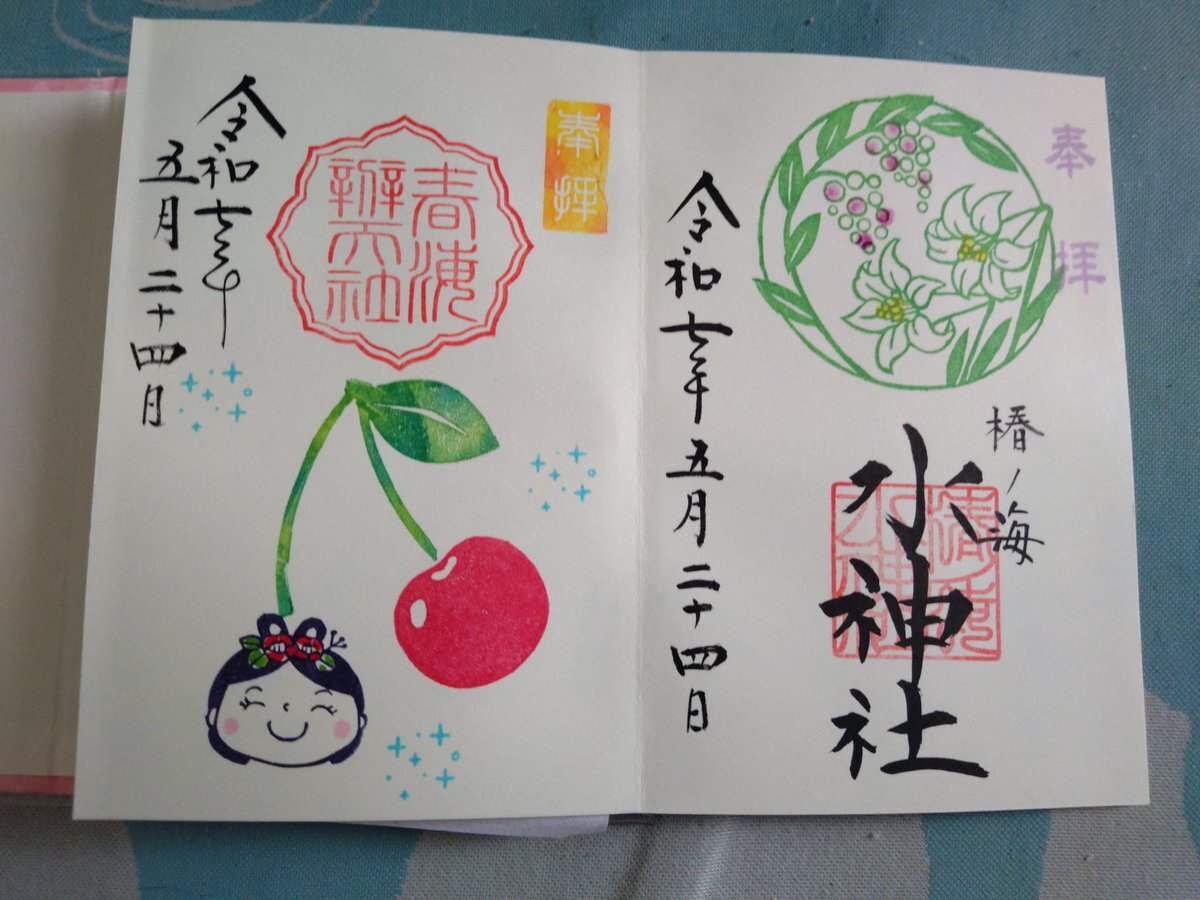 奉拝
椿ノ海
水神社
令和七年五月二十四日
奉拝
春海
辦天社
令和七年
五月二十四日